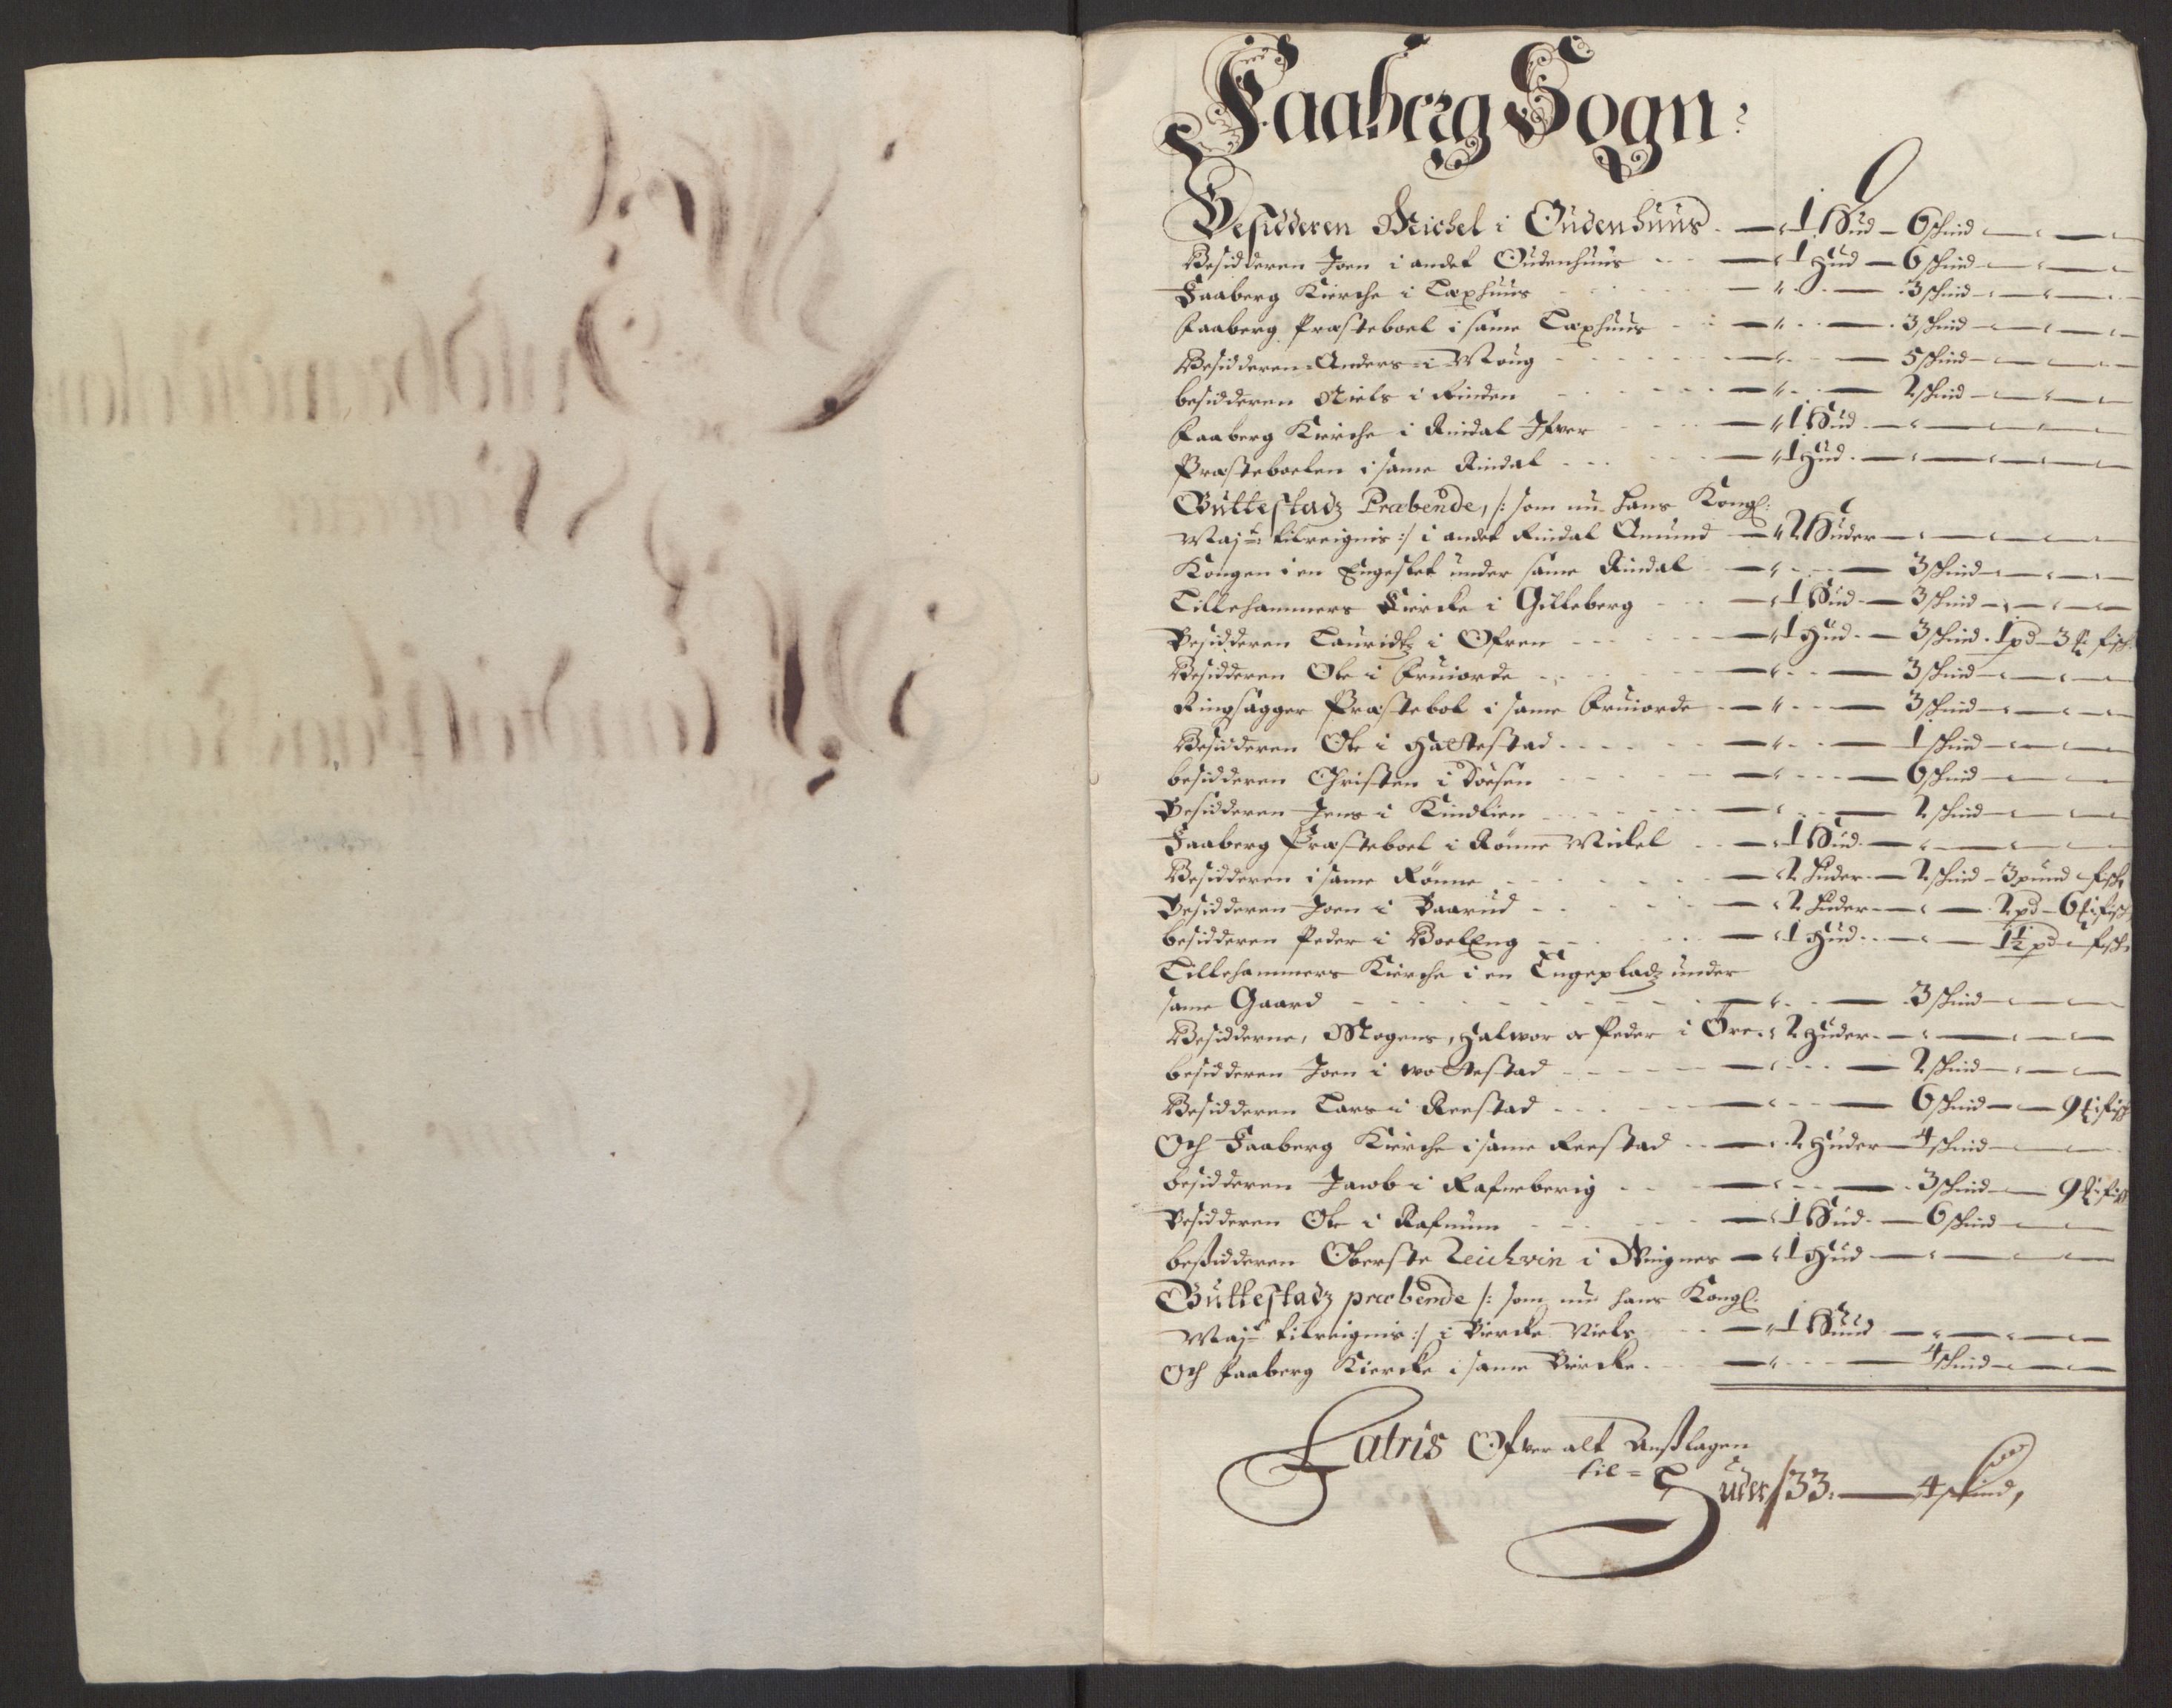 Faaberg Sogn:
Besidderen Michel i Oudenhuus — 1 Hud — 6 schind
Besidderen Joen i andet Oudenhuus — 1 Hud — 6 schind
Faaberg Kirche i Laxhuus — 3 schind
Faaberg Præsteboel i same Laxhuus — 3 schind
Besidderen Anders i Moug — 5 schind
besidderen Niels i Rinden — 2 schind
Faaberg Kirche i Rindal Ifver — 1 Hud
Præsteboelen i same Rindal — 1 Hud
Guttestadz Præbende, /: som nu hans Kongl:
Majt: tilreignis :/ i andet Rindal Amund — 2 Huder
Kongen i en Engeslet under same Rindal — 3 schind
Lillehammers Kircke i Gilleberg — 1 Hud — 3 schind
Besidderen Lauridtz i Ofren — 1 Hud — 3 schind 1 pd — 3 fisch
Besidderen Ole i — 3 schind
Ringsagger Præstebol i same — 3 schind
Besidderen Ole i Hattestad — 1 schind
besidderen Christen i — 6 schind
Besidderen Jens i Kindlien — 2 schind
Faaberg Præsteboel i Rønne Mickel — 1 Hud
Besidderen i same Rønne — 2 Huder — 2 schind — 3 pund fisch
Besidderen Joen i Baarud — 2 Huder — 2 pd — 6 fisch
besidderen Peder i BoelEng — 1 Hud — 1½ pd fisch
Lillehammers Kirche i en Engepladz under
same Gaard — 3 schind
Besidderne, Mogens, Halvor oc Peder i Öre — 2 Huder
besidderen Joen i — 2 schind
Besidderen Lars i Reestad — 6 schind — 9 fisch
Och Faaberg Kirche i same Reestad — 2 Huder 4 schind
besidderen Jacob i Rafneberig — 3 schind — 9 fisch
Besidderen Ole i Rafnum — 1 Hud — 6 schind
besidderen Oberste Reichvin i Wignes — 1 Hud
Guttestadz præbende /: som nu hans Kongl.
Majt tilreignis :/ i Bircke Niels — 1 Huud
Och Faaberg Kircke i same Bircke — 4 schind
Latris Ofver alt Anslagen
til =
Huder / 33 — 4 schind,